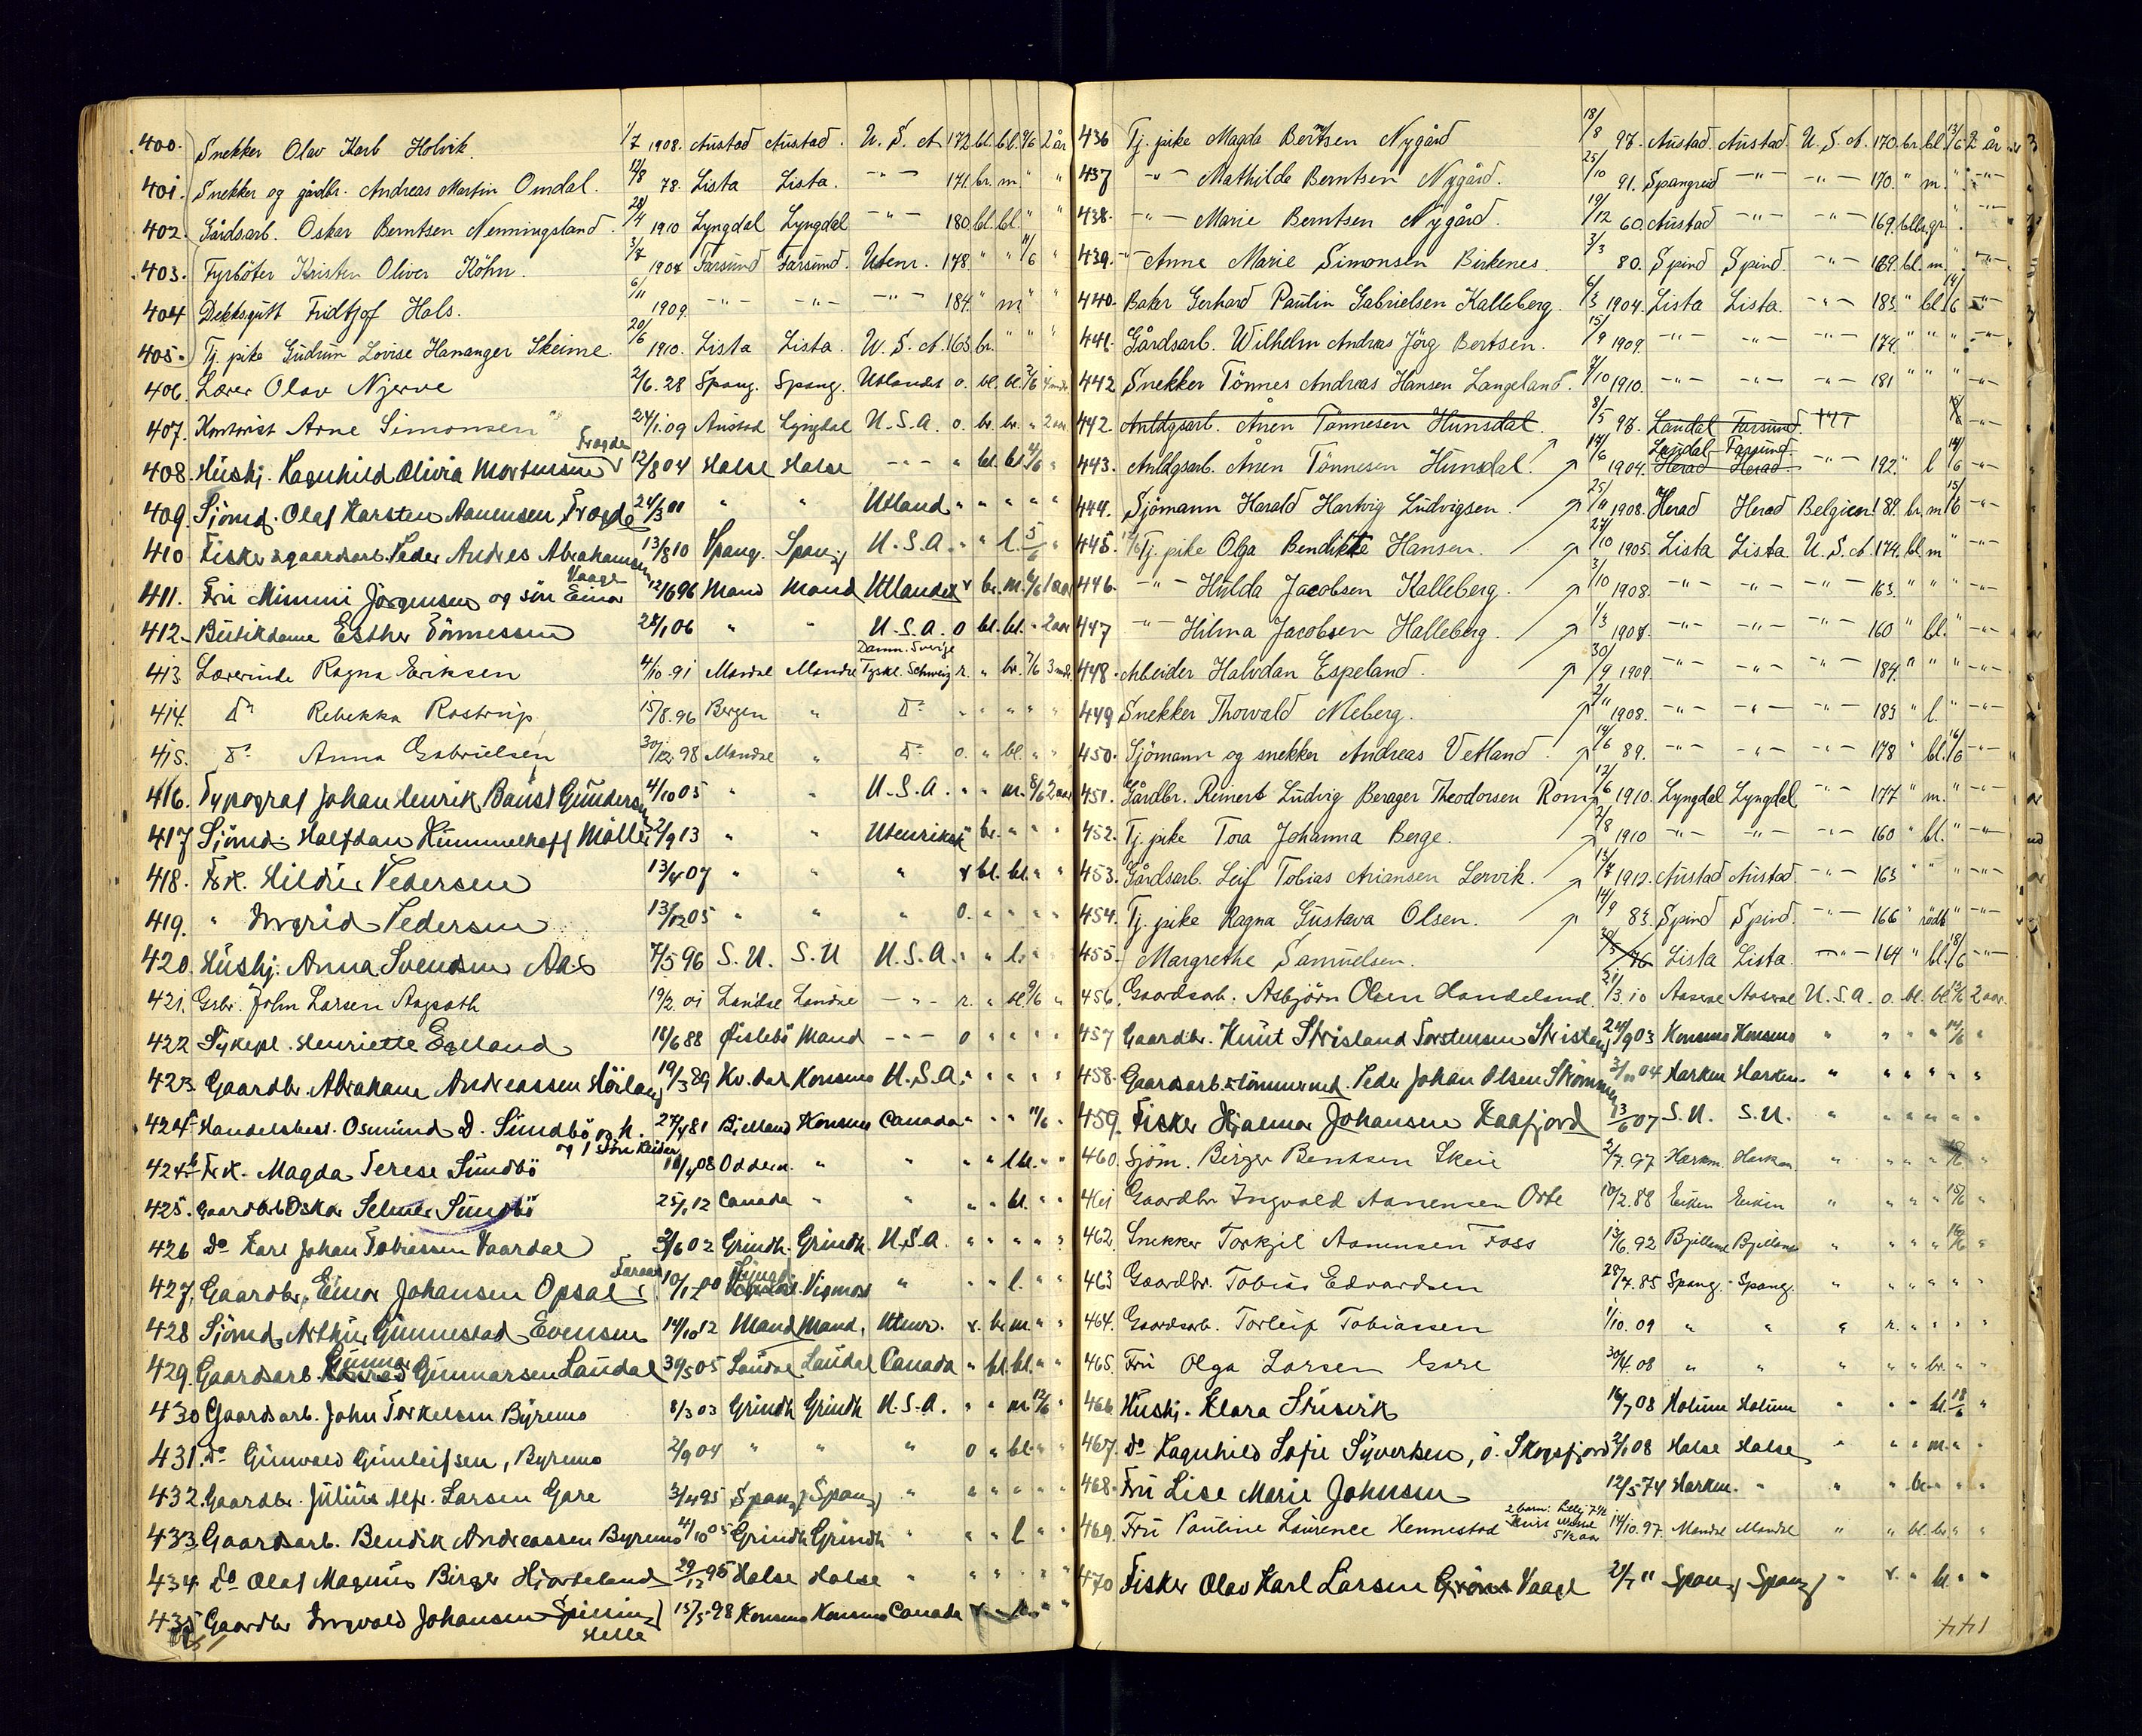 400. Snekker Olav Karl Holvik. 1/7 1908. Austad Austad. U. S. A 172 bl. bl. 9/6 2 år
401. Snekker og gårdbr. Andreas Martin Omdal. 12/8 78. Lista Lista. -"- 171. br. m. " "
402. Gårdsarb. Oskar Berntsen Nenningsland. 28/4 1910 Lyngdal Lyngdal -"- 180 bl. bl. " "
403. Fyrböter Kristen Oliver Köhn. 3/7 1907 Farsund Farsund. Utenr. 178. " " 11/6 "
404 Dekksgutt Fridtjof Hals. 6/11 1909. -"- -"- -"- 184. " m " "
405. Tj. pike Gudrun Lovise Hananger Skeime. 20/6 1910. Lista Lista. U. S. A. 163. br. " " "
406. Lærer Olav Njerve 2/6. 28 Spang. Spang. Utlandet o. bl. bl. 2/6
407. Kontorist Arne Simonsen 24/1.09 Austad Lyngdal U.S.A. o. br. br. " 2 aar
408. Hushj. Ragnhild Olivia Mortensen Frogde 12/8 04 Halse Halse -"- " bl. bl. 4/6 "
409. Sjömd. Olaf Karsten Aanensen, Frogde 24/3 11 " " Utland " " " " "
410. Fisker & gaardsarb. Peder Andres Abrahamsen Vaage 13/8 10 Spang. Spang U.S.A. " " l. 5/6 "
411. Fru Mimmi Jörgensen og sön Einar 12/6 96 Mand Mand Utlandet r br. m. 6/6 1 aar
412. Butikdame Esther Tönnessen 28/1 06 " " U.S.A. o bl. bl. " 2 aar
413 Lærerinde Ragna Eriksen 4/10. 91 Mandal Mandal Danm. Sverige Tyskl. Schweiz r. " br. 7/6 3 mdr.
414. Do Rebekka Rostrup 15/8. 96 Bergen " Do " " " " "
415. Do Anna Gabrielsen 30/12 98 Mandal " Do o. " bl. " "
416. Typograf Johan Henrik Baust Gundersen 4/10 05 " " U.S.A. " " m. 8/6 2 aar
417 Sjömd. Halfdan Hummelhoff Möller 2/9 13 " " Utenriks r br. " " "
418. Frk. Hildur Pedersen 13/4 07 " " " r bl. bl. " "
419. " Ingrid Pedersen 13/12 05 " " " o. " " " "
420. Hushj. Anna Svendsen Aas 7/5 96 S. U. S. U U.S.A. " " l. " "
421. Gsbr. John Larsen 19/2. 01 Laudal Laudal -"- r. " bl 9/6 "
422 Sykepl. Henriette Egeland 18/6 88 Öislebö Mand -"- o " " " "
423 Gaardbr. Abraham Andreassen 19/3 89 Kv.dal Konsmo U.S.A. " " " " "
424a Handelsbest. Osmund D. Sundbö og 1 sön Reidar 27/4 81 Bjelland Konsmo Canada " " " 11/6 "
424b Frk. Magda Terese Sundbö 18/4 08 Oddern. " " " " lbl. " "
425. Gaardbr Oskar Selmer Sundbö 25/1 12 Canada " " " " bl. " "
426 Do Karl Johan Tobiassen Vaardal 2/6 02 Grindh. Grindh. U.S.A. " " " " "
427. Gaardbr. Einar Johansen Opsal 10/12 00 Vigmos " " " l. " "
428 Sjömd. Arthur Gunnestad Evensen 14/10 12 Mand Mand, Utenr. r. br m. " "
429. Gaardsarb. Gunnar Gunnarsen Laudal 30/5 05 Laudal Laudal Canada " bl bl. " "
430 Gaardsarb. John Torkelsen Byremo 8/3 03 Grindh Grindh U.S.A. " " m. 12/6 "
431. Do Gunvald Gunleifsen, Byremo 2/9 04 " " " o " bl. " "
432. Gaardbr. Julius Alfr. Larsen Gare 3/4 95 Spang Spang " " " " " "
433. Gaardsarb. Bendik Andreassen Byremo 4/10 05 Grindh Grindh " " " l " "
434. Do Olaf Magnus Birger Hjorteland 29/12 95 Halse Halse " " " " " "
435 Gaardbr Ingvald Johansen Spilling Helle 15/5 98 Konsmo Konsmo Canada
436 Tj. pike Magda Berntsen Nygård 18/8 98. Austad. Austad. U. S. A. 170. br. bl. 13/6 2 år
437 -"- Mathilde Berntsen Nygård. 25/10 91. Spangreid -"- -"- 170. " m. " -"-
438. -"- Marie Berntsen Nygård. 19/12 60. Austad -"- -"- 169. gr. " -"-
439. -"- Anne Marie Simonsen Birkenes. 3/3 80. Spind Spind. -"- 169. bl. m. " -"-
440. Baker Gerhard Paulin Gabrielsen Kalleberg. 6/3 1904. Lista Lista. -"- 183. " bl. 14/6 -"-
441. Gårdsarb. Wilhelm Andreas Jörg Bertsen. 15/9 1909. -"- -"- -"- 174. " " " -"-
442 Snekker Tönnes Andreas Hansen Langeland. 7/10 1910. -"- -"- -"- 181 " " " -"-
442. Anldgsarb. Ånen Tönnesen Hunsdal. 8/5 98. Laudal Farsund. -"-
443. Anldgsarb. Ånen Tönnesen Hunsdal. 14/6 1904. Laudal Farsund. Herad Herad -"- 192. " l 14/6 -"-
444. Sjömann Harald Hartvig Ludvigsen. 25/11 1908. Herad Herad Belgien 189. br. m 15/6 -"-
445. Tj. pike Olga Bendikte Hansen. 27/10 1905. Lista Lista U. S. A. 174. bl. m " -"-
446. -"- Hulda Jacobsen Kalleberg. 3/10 1908. -"- -"- -"- 163. " " " -"-
447 -"- Hilma Jacobsen Kalleberg. 1/3 1907. -"- -"- -"- 160 " bl. " -"-
448. Arbeider Halvdan Espeland. 30/9 1909 -"- -"- -"- 184. " " " -"-
449 Snekker Thorvald Meberg. 2/11 1908. -"- -"- -"- 183 " l. " -"-
450. Sjömann og snekker Andreas Vetland. 14/6 89. -"- -"- -"- 178 " bl. 16/6 -"-
451. Gårdbr. Reinert Ludvig Berager Theodorsen Rom. 12/6 1910. Lyngdal Lyngdal -"- 177 " m. " -"-
452. Tj. pike Tora Johanna Berge. 2/8 1910 -"- -"- -"- 160 " bl. " -"-
453. Gårdsarb. Leif Tobias Ariansen Lervik. 13/7 1912. Austad Austad. -"- 163 " " " -"-
454. Tj. pike Ragna Gustava Olsen. 14/9 83. Spind Spind. -"- 166 " rödb " -"-
455. Margrethe Samuelsen. 76 Lista Lista. -"- 164 " bl. 18/6 -"-
456. Gaardsarb. Asbjörn Olsen Handeland 21/3. 10 Aaseral Aaseral U. S. A. o. bl. bl. 12/6 2 aar.
457 Gaardbr. Knut Strisland Torstensen Strisland 24/9 03 Konsmo Konsmo " " " " 14/6 "
458. Gaardsarb. & tömmermd. Peder Johan Olsen 3/11 04 Harkm Harkm. " " " " " "
459. Fisker Hjalmar Johansen Kaafjord 13/6 07 S.U. S.U. " " " " " "
460. Sjöm. Birger Bentsen Skeie 2/7. 97 Harkm. Harkm " " " " "
461 Gaardbr Ingvald Aanensen Orte 10/2. 88 Eiken Eiken " " " " 15/6 "
462. Snekker Torkjel Aanensen Foss 13/6. 92 Bjelland Bjelland " " " " 16/6 "
463 Gaardbr. Tobias Edvardsen 28/7. 85 Spang. Spang. " " " " " "
464. Gaardsarb. Torleif Tobiassen 1/10. 09 " " " r. " " " "
465. Fru Olga Larsen Gare 30/4. 08 " " " " " br. " "
466. Hushj. Klara Stusvik 16/7 08 Holum Holum " " " bl. 18/6 "
467. Do Ragnhild Sofie Syvertsen, ö. Skogsfjord 2/1 08 Halse Halse " " " m. " "
468. Fru Lise Marie Johnsen 12/5 74 Harkm. " " " br. " " "
469. Fru Pauline Laurence Hennestad 14/10. 97. Mandal Mandal " " bl. br. " "
470 Fisker Olav Karl Larsen Vaage 20/7 11 Spang Spang " r. " bl. " "